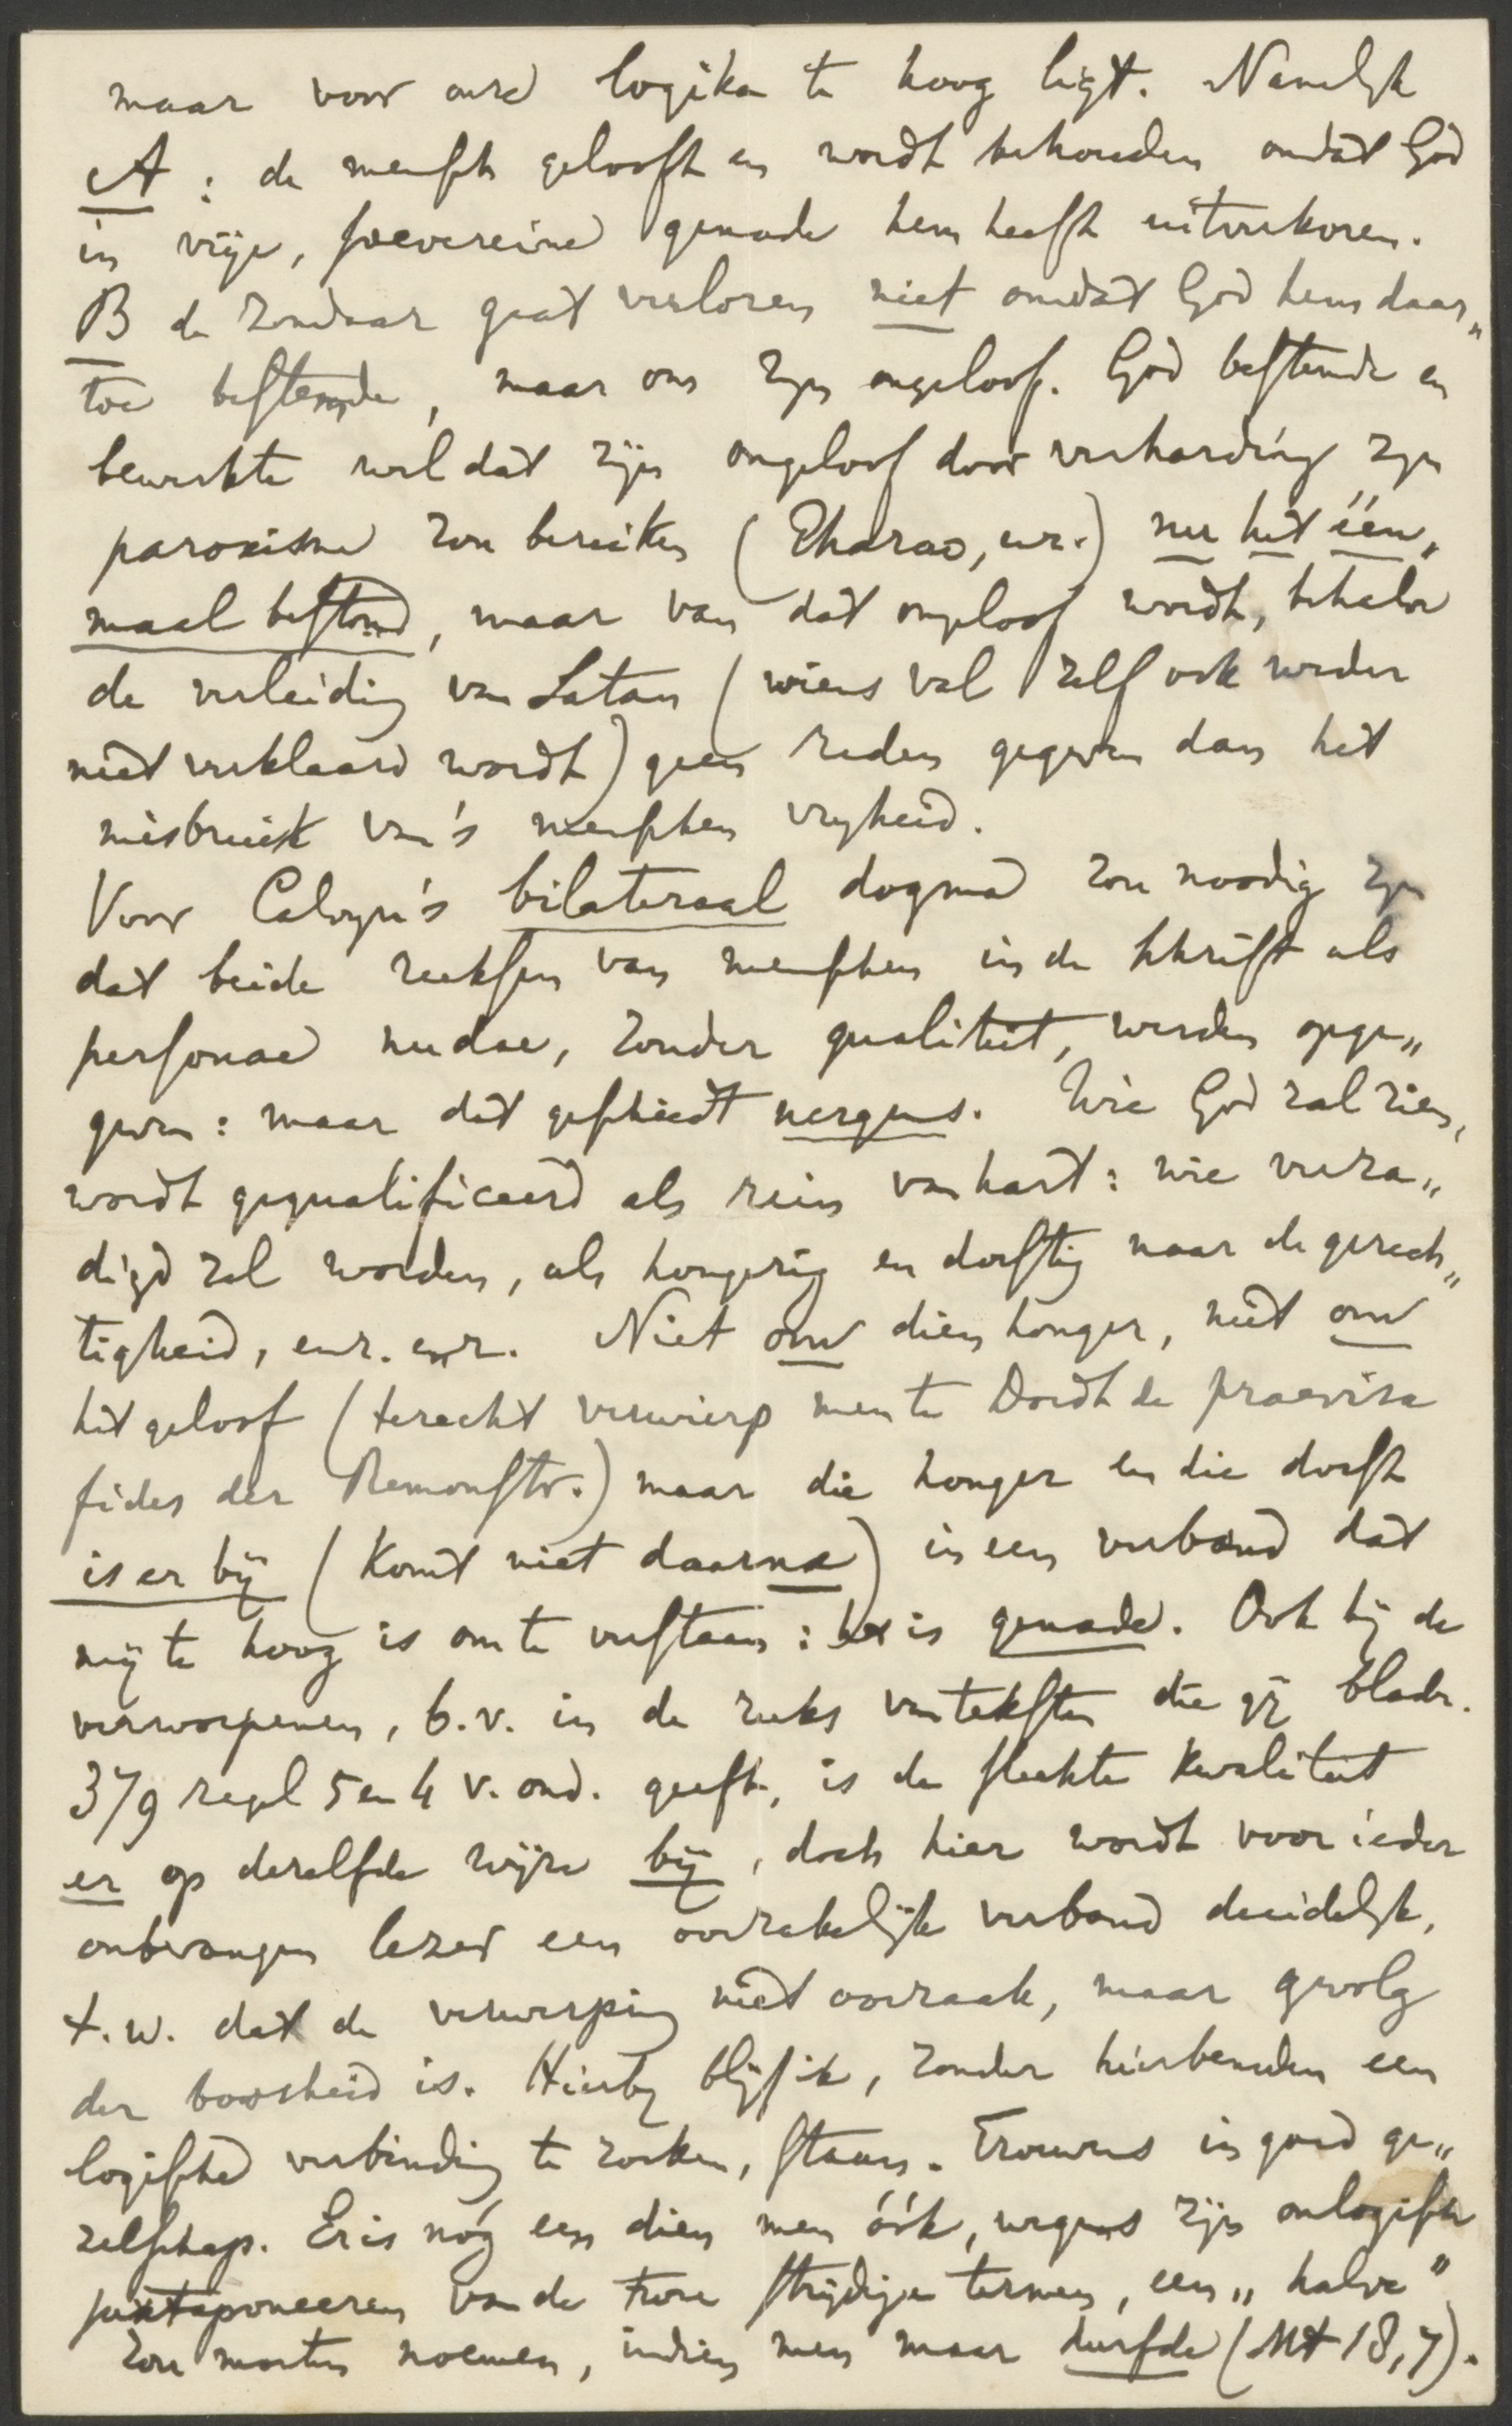 maar voor onze logika te hoog ligt. Namelijk
A : de mensch gelooft en wordt behouden omdat God
in vrije, soevereine genade hem heeft uitverkoren.
B de zondaar gaat verloren niet omdat God hem daar„
toe bestemde, maar om zijn ongeloof. God bestemde en
bewerkte wel dat zijn ongeloof door verharding zijn
paroxisme zou bereiken (Pharao, enz.) nu het één„
maal bestond, maar van dat ongeloof wordt, behalve
de verleiding van Satan (wiens val zelf ook weder
niet verklaard wordt) geen reden gegeven dan het
misbruik van 's menschen vrijheid.
Voor Calvyn's bilateraal dogma zou noodig zijn
dat beide reeksen van menschen in de Schrift als
personae nudae, zonder qualiteit, werden opge„
geven : maar dat geschiedt nergens. Wie God zal zien,
wordt gequalificeerd als rein van hart : wie verza„
digd zal worden, als hongerig en dorstig naar de gerech„
tigheid, enz. enz. Niet om dien honger, niet om
het geloof (terecht verwierp men te Dordt de praevisa
fides der Remonstr.) maar die honger en die dorst
is er bij (komt niet daarna) in een verband dat
mij te hoog is om te verstaan : het is genade. Ook bij de
verworpenen, b.v. in de reeks van teksten die gij bladz.
379 regel 5 en 4 v. ond. geeft, is de slechte kwaliteit
er op dezelfde wijze bij, doch hier wordt voor ieder
onbevangen lezer een oorzakelijk verband duidelijk,
t.w. dat de verwerping niet oorzaak, maar gevolg
der boosheid is. Hierbij blijf ik, zonder hierbeneden een
logische verbinding te zoeken, staan. Trouwens in goed ge„
zelschap. Er is nóg een dien men óók, wegens zijn onlogisch
juxtaponeeren van de twee strijdige termen, een „halve"
zou moeten noemen, indien men maar durfde (Mt 18,7).